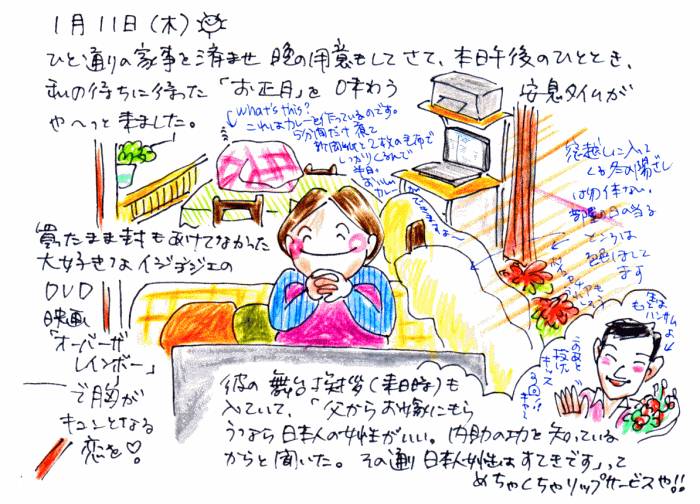 1月11日(木)
ひと通りの家事を済ませ 晩の用意もしてさて、本日午後のひととき、
私の待ちに待った「お正月」を 味わう 安息タイムが
やへっと来ました。
what's this?
これはカレーを作っているのです。
5分間だけ煮て
新聞紙と2枚の毛布で
いっかりくるんで
半日。
おいしい
カレーができますよ~
窓越しに入って
くる冬の陽ざし
は
部屋の日の当る
ところは
色あせて
ます
買たまま封もあけてなかった
大好きなイジョンジェの
DVD
映画
「オーバーザ
レインボー」
で胸が
キュンとなる
恋を♡
実は
ハンサムよ
投げ
キッス
3回!!
彼の舞台挨拶(来日時)も
入っていて、「父からお嫁にもら
うなら日本人の女性がいい。内助の功を知っている
からと聞いた。その通り日本人女性はすてきです」って
めちゃくちゃリップサービスや!!